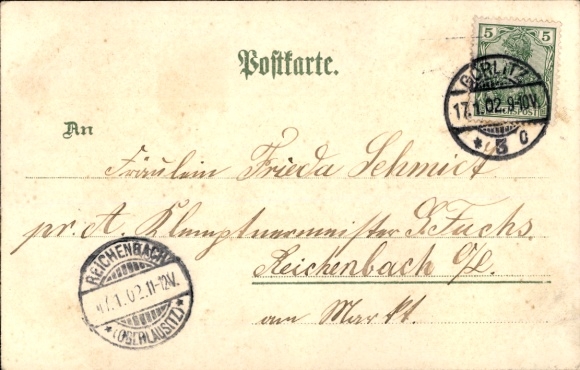 Postkarte.
5 5
REICHSPOST
GÖRLITZ
17.1.02.9-10V.
* 3 c
An
Fräulein Frieda Schmidt
pr. A. Klemptnermeister G. Fuchs.
Reichenbach O/L.
am Markt.
REICHENBACH
17.1.02.11-12V.
* (OBERLAUSITZ) *